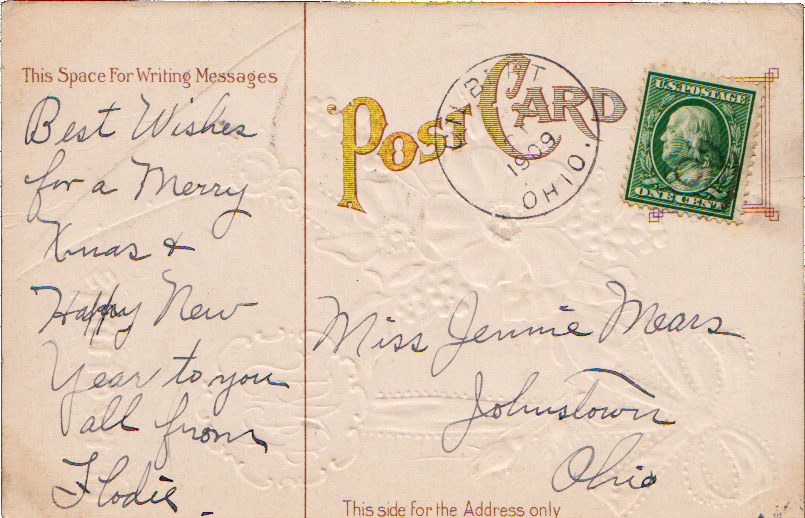 This Space For Writing Messages
Best Wishes
for a Merry
Xmas &
Happy New
Year to you
all from
Flodie
POST CARD
1909
OHIO.
U.S. POSTAGE
ONE CENT
Miss Jennie Mears
Johnstown
Ohio
This side for the Address only